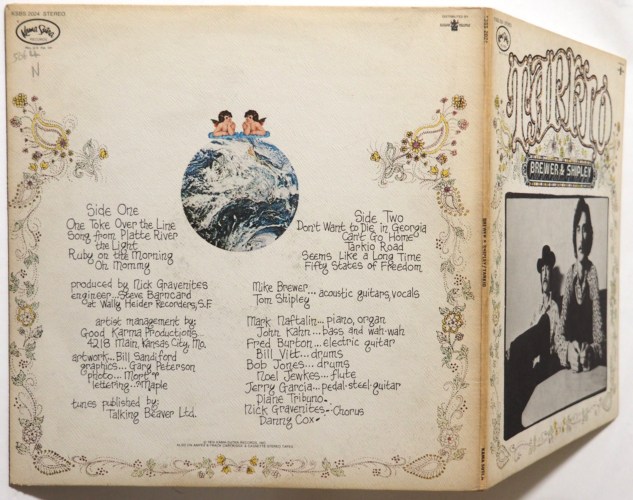 KSBS 2024 STEREO
Kama Sutra
RECORDS
DISTRIBUTED BY
N
Side One
One Toke Over the Line
Song from Platte River
the Light
Ruby on the Morning
Oh Mommy
produced by Nick Gravenites
engineer... Steve Barncard
at Wally Heider Recorders, S.F.
artist management by:
Good Karma Productions...
4218 Main, Kansas City, Mo.
artwork... Bill Sandiford
graphics... Gary Peterson
photo...
lettering... Maple
tunes published by:
Talking Beaver Ltd.
Side Two
Don't Want to Die in Georgia
Can't Go Home
Tarkio Road
Seems Like a Long Time
Fifty States of Freedom
Mike Brewer...
Tom Shipley
acoustic guitars, vocals
Mark Naftalin... piano, organ
John Kahn... bass and wah-wah
Fred Burton... electric guitar
Bill Vitt... drums
Bob Jones... drums
Noel Jewkes... flute
Jerry Garcia... pedal steel guitar
Diane Tribuno
Nick Gravenites... Chorus
Danny Cox
TARKIO
BREWER & SHIPLEY
BREWER & SHIPLEY/TARKIO